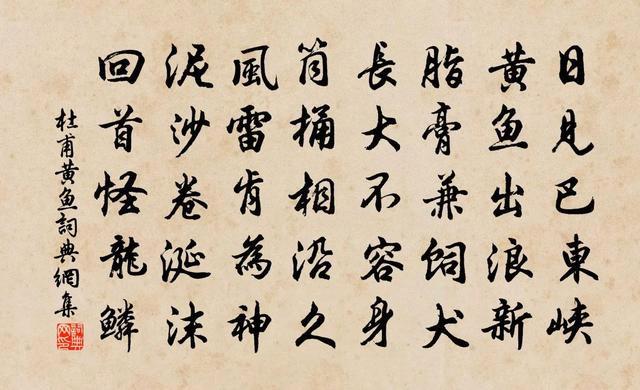 日見巴東峽
黃鱼出浪新
脂膏兼飼犬
長大不容身
筒桶相沿久
風雷肯為神
泥沙卷涎沫
回首怪龍鱗
杜甫黃鱼詞典網集